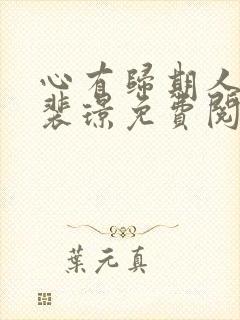 心有歸期人
裴璟免費閱
葉元真